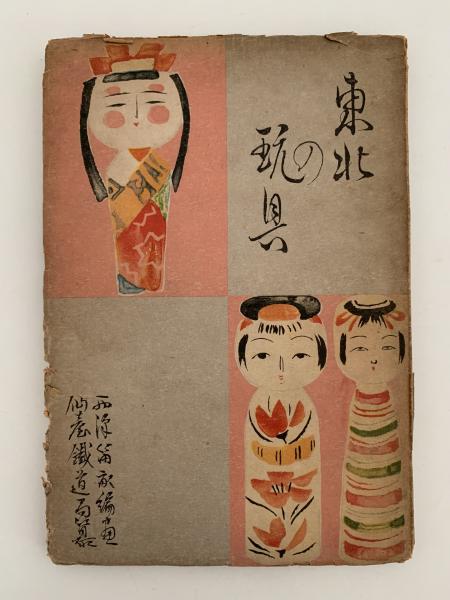 東北の
玩具
西澤笛畝編画
仙臺鐵道局纂